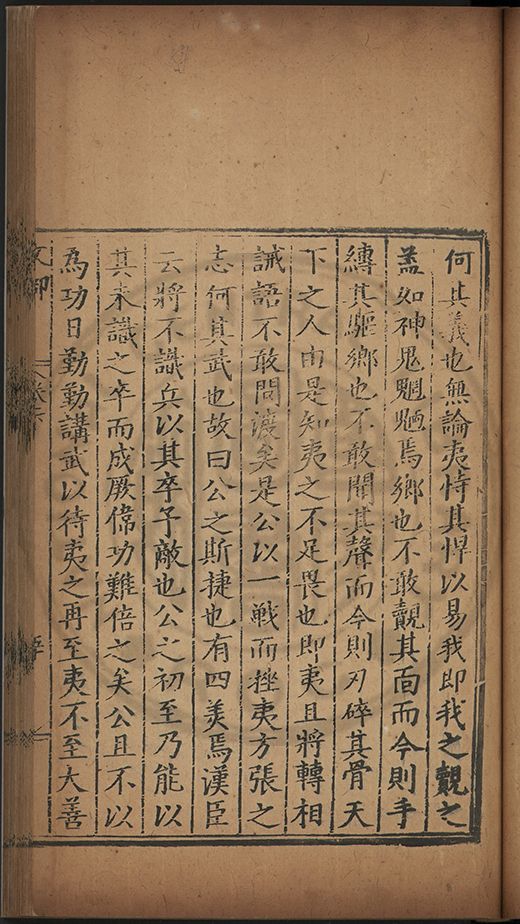 何其義也無論夷恃其悍以易我即我之覿之
盖如神鬼魍魎焉鄉也不敢覿其面而今則手
縛其驅鄉也不敢聞其聲而今則刃碎其骨天
下之人由是知夷之不足畏也即夷且將轉相
誡語不敢問渡矣是公以一戰而挫夷方張之
志何其武也故曰公之斯捷也有四美焉漢臣
云將不識兵以其卒予敵也公之初至乃能以
其未識之卒而成厥偉功難倍之矣公且不以
為功日勤勤講武以待夷之再至夷不至大善